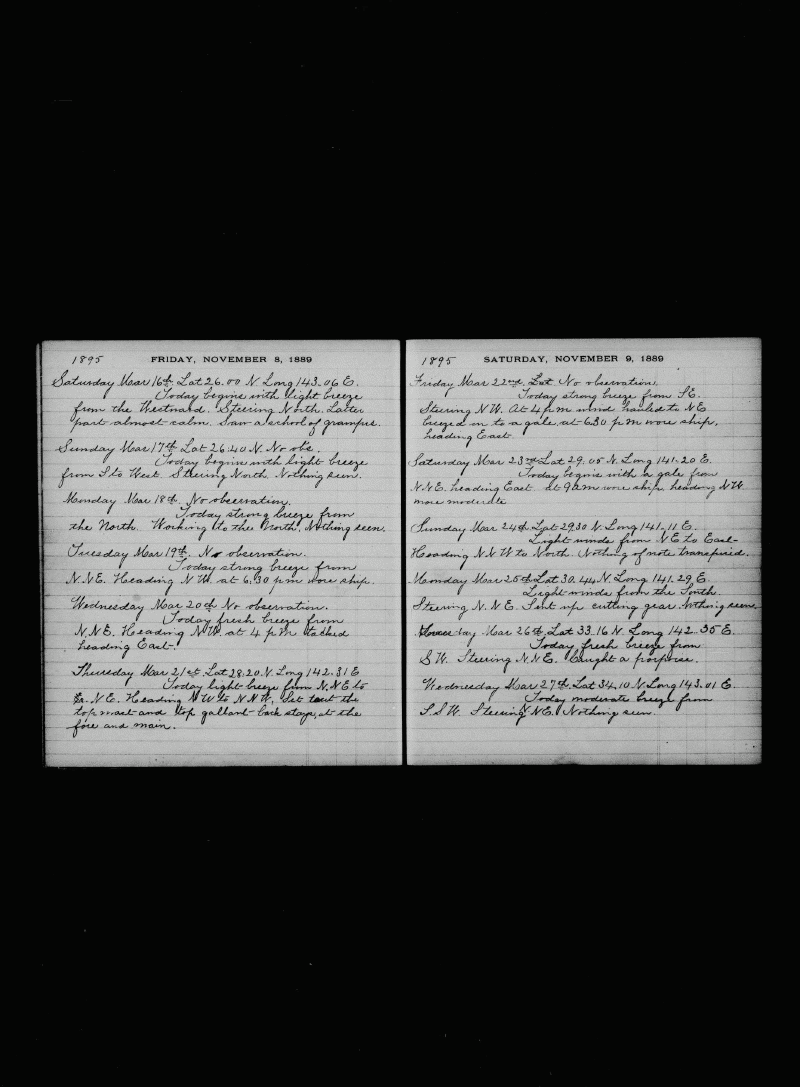 1895 FRIDAY, NOVEMBER 8, 1889
Saturday Mar 16th Lat 26.00 N Long 143.06 E.
Today begins with light breeze
from the Westward. Steering North. Latter
part almost calm. Saw a school of grampus.
Sunday Mar 17th Lat 26.40 N. No obs.
Today begins with light breeze
from S to West. Steering North Nothing seen.
Monday Mar 18th. No observation.
Today strong breeze from
the North. Working to the North. Nothing seen.
Tuesday Mar 19th. No observation.
Today strong breeze from
N.N.E. Heading N.W. at 6.30 p.m wore ship.
Wednesday Mar 20th No observation.
Today fresh breeze from
N.N.E. Heading N.W. at 4 p.m tacked
heading East.
Thursday Mar 21st Lat 28.20 N. Long 142.31 E
Today light breeze from N.N.E to
E.N.E. Heading NW to N.N.W. Set taut the
top mast and top gallant back stays, at the
fore and main.
1895 SATURDAY, NOVEMBER 9, 1889
Friday Mar 22nd Lat No observation.
Today strong breeze from SE.
Steering N.W. At 4 p.m wind hauled to NE
breezed in to a gale at 6.30 p.m wore ship,
heading East
Saturday Mar 23rd Lat 29.05 N Long 141.20 E.
Today begins with a gale from
N.N.E. heading East at 9 a.m wore ship. heading N.W.
more moderate
Sunday Mar 24th Lat 29.30 N Long 141.11 E.
Light winds from NE to East
Heading N.N.W to North. Nothing of note transpired.
Monday Mar 25th Lat 30.44 N Long 141.29 E
Light winds from the South.
Steering N.N.E. Sent up cutting gear. Nothing seen.
Tuesday Mar 26th Lat 33.16 N Long 142.35 E.
Today fresh breeze from
S.W. Steering N.N.E. Caught a porpoise.
Wednesday Mar 27th Lat 34.10 N Long 143.01 E.
Today moderate breeze from
S.S.W. Steering N.N.E. Nothing seen.